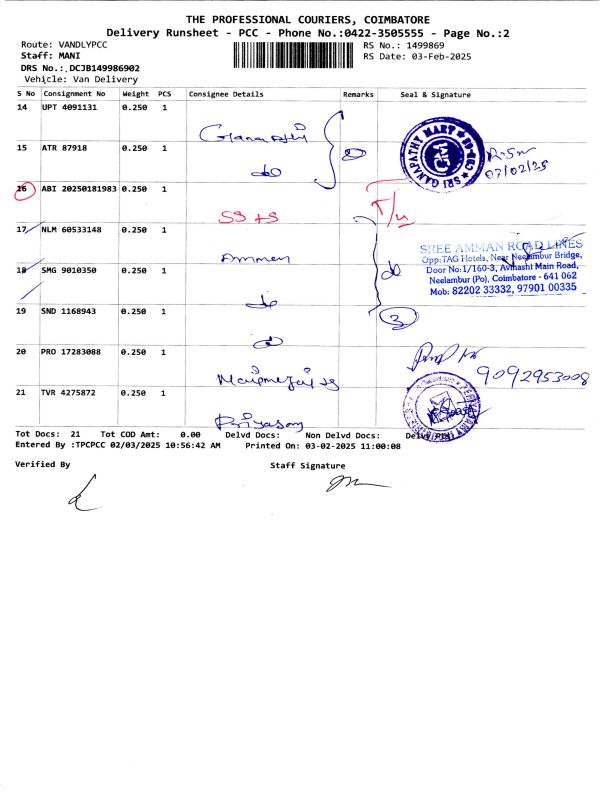 THE PROFESSIONAL COURIERS, COIMBATORE
Delivery Runsheet - PCC - Phone No.:0422-3505555 - Page No.:2
Route: VANDLYPCC RS No.: 1499869
Staff: MANI RS Date: 03-Feb-2025
DRS No.: DCJB149986902
Vehicle: Van Delivery
S No Consignment No Weight PCS Consignee Details Remarks Seal & Signature
14 UPT 4091131 0.250 1
SRI GANAPATHY MART
15 ATR 87918 0.250 1
do
16 ABI 20250181983 0.250 1
SS &S
17 NLM 60533148 0.250 1
Amman
SREE AMMAN ROAD LINES
Opp:TAG Hotels, Near Neelambur Bridge,
Door No:1/160-3, Avinashi Main Road,
Neelambur (Po), Coimbatore - 641 062
Mob: 82202 33332, 97901 00335
18 SMG 9010350 0.250 1
do
do
19 SND 1168943 0.250 1
3
do
20 PRO 17283088 0.250 1
9092953008
21 TVR 4275872 0.250 1
Tot Docs: 21 Tot COD Amt: 0.00 Delvd Docs: Non Delvd Docs:
Entered By :TPCPCC 02/03/2025 10:56:42 AM Printed On: 03-02-2025 11:00:08
Verified By Staff Signature